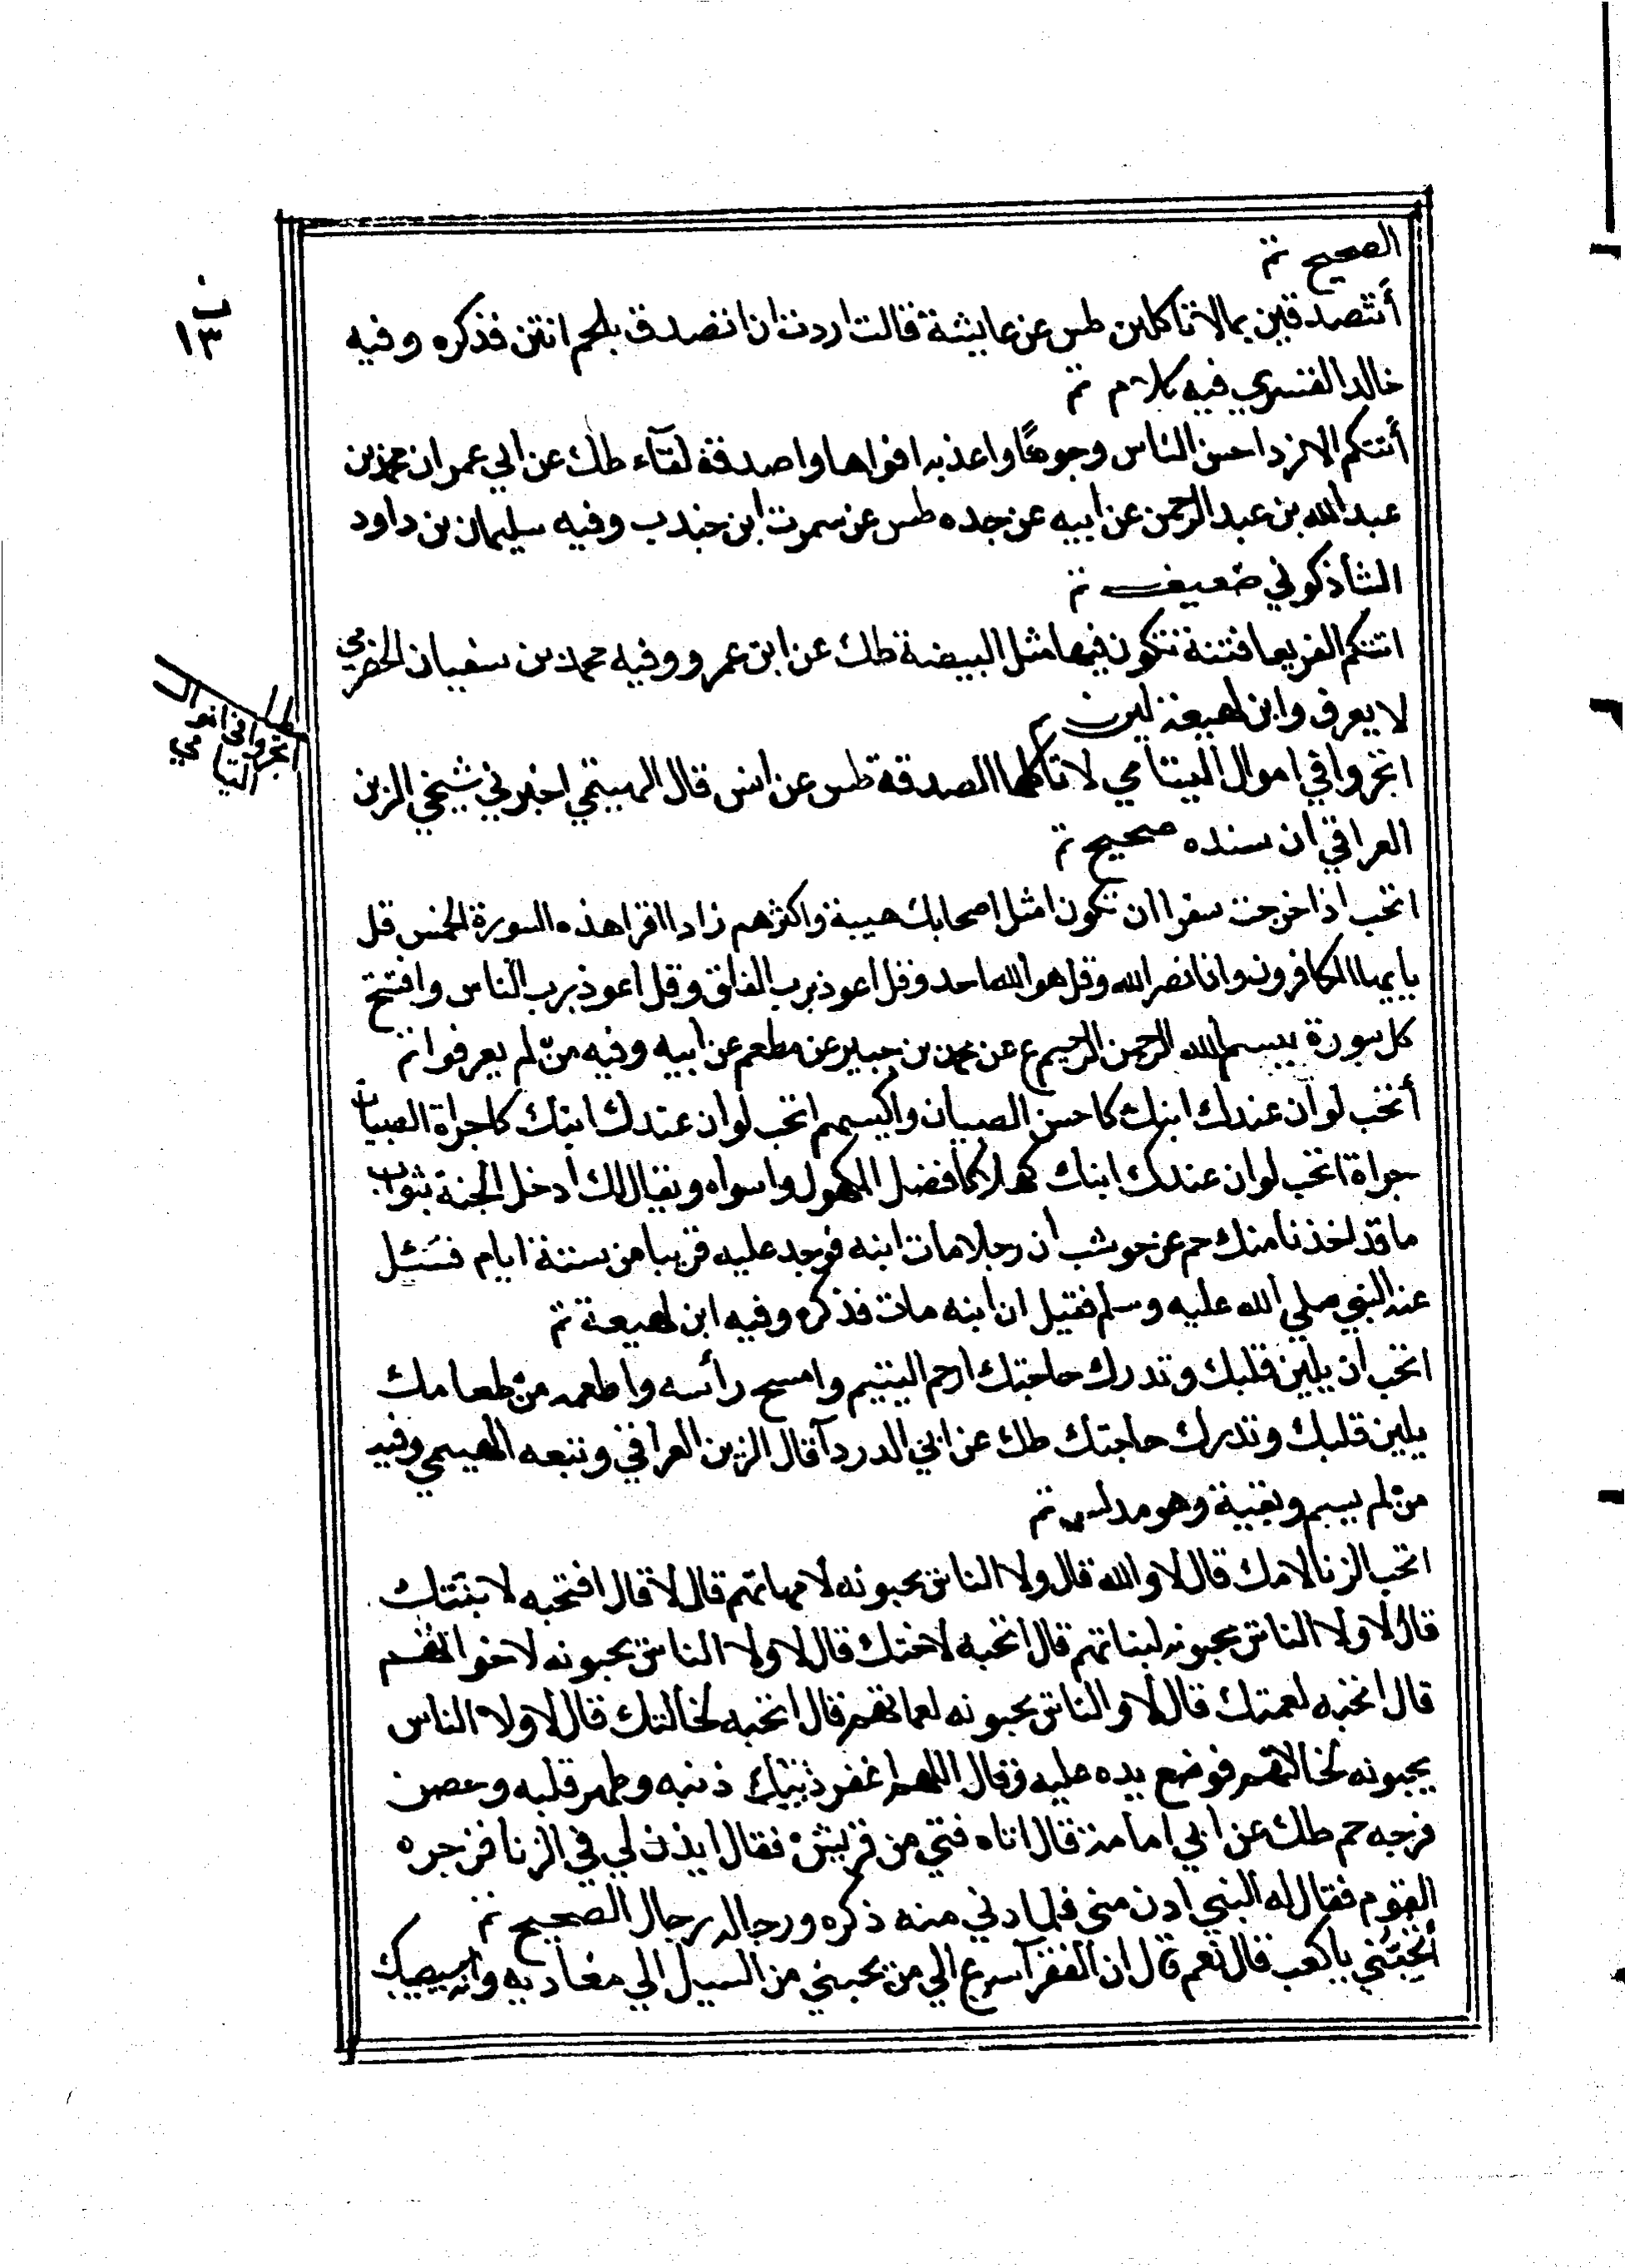 الصحيح تم
أتتصدقين بما لا تأكلين طس عن عايشة قالت اردت ان اتصدق بلحم انتن فذكره وفيه
خالد القسري فيه كلام تم
أتتكم الازد احسن الناس وجوها واعذبه افواها واصدقه لقآء طك عن ابي عمران محمد بن
عبد الله بن عبد الرحمن عن ابيه عن جده طس عن سمرت ابن جندب وفيه سليمان بن داود
الشاذكوني ضعيف تم
اتتكم الفريعا فتنة تكون فيها مثل البيضة طك عن ابن عمرو وفيه محمد بن سفيان الحضرمي
لا يعرف وابن لهيعة لين تم
اتجروا في اموال اليتامي لا تأكلها الصدقة طس عن انس قال الهيتمي اخبرني شيخي الزين
العراقي ان سنده صحيح تم
اتحب اذا خرجت سفرا ان تكون امثل اصحابك هيبة واكثرهم زادا اقرا هذه السورة الخمس قل
يا ايها الكافرون واذا نصر الله وقل هو الله احد وقل اعوذ برب الفلق وقل اعوذ برب الناس وافتتح
كل سورة ببسم الله الرحمن الرحيم ع عن محمد بن جبير عن مطعم عن ابيه وفيه من لم يعرفوا تم
أتحب لو ان عندك ابنك كاحسن الصبيان واكيسهم اتحب لو ان عندك ابنك كاجراة الصبيان
جراة اتحب لو ان عندك ابنك كهلا كأفضل الكهول واسواه ويقال لك ادخل الجنة بثواب
ما قد اخذنا منك حم عن حوشب ان رجلا مات ابنه فوجد عليه قريبا من ستة ايام فسئل
عنه النبي صلي الله عليه وسلم فقيل ان ابنه مات فذكره وفيه ابن لهيعة تم
اتحب ان يلين قلبك وتدرك حاجتك ارحم اليتيم وامسح رأسه واطعمه من طعامك
يلين قلبك وتدرك حاجتك طك عن ابي الدردآ قال الزين العراقي وتبعه الهيتمي وفيه
من لم يسم وبقية وهو مدلس تم
اتحب الزنا لامك قال لا والله قال ولا الناس يحبونه لامهاتهم قال لا قال افتحبه لابنتك
قال لا ولا الناس يحبونه لبناتهم قال اتحبه لاختك قال لا ولا الناس يحبونه لاخواتهم
قال اتحبه لعمتك قال لا والناس يحبونه لعماتهم قال اتحبه لخالتك قال لا ولا الناس
يحبونه لخالاتهم فوضع يده عليه وقال اللهم اغفر ذنبه وطهر قلبه وحصن
فرجه حم طك عن ابي امامة قال اتاه فتي من قريش فقال ايذن لي في الزنا فزجره
القوم فقال له النبي ادن مني فلما دني منه ذكره ورجاله رجال الصحيح تم
أتحبني يا كعب قال نعم قال ان الفقر آسرع الي من يحبني من السيل الي معاديه وانه سيصيبك
ب
١٣
اتجروا في امو
اليتامي